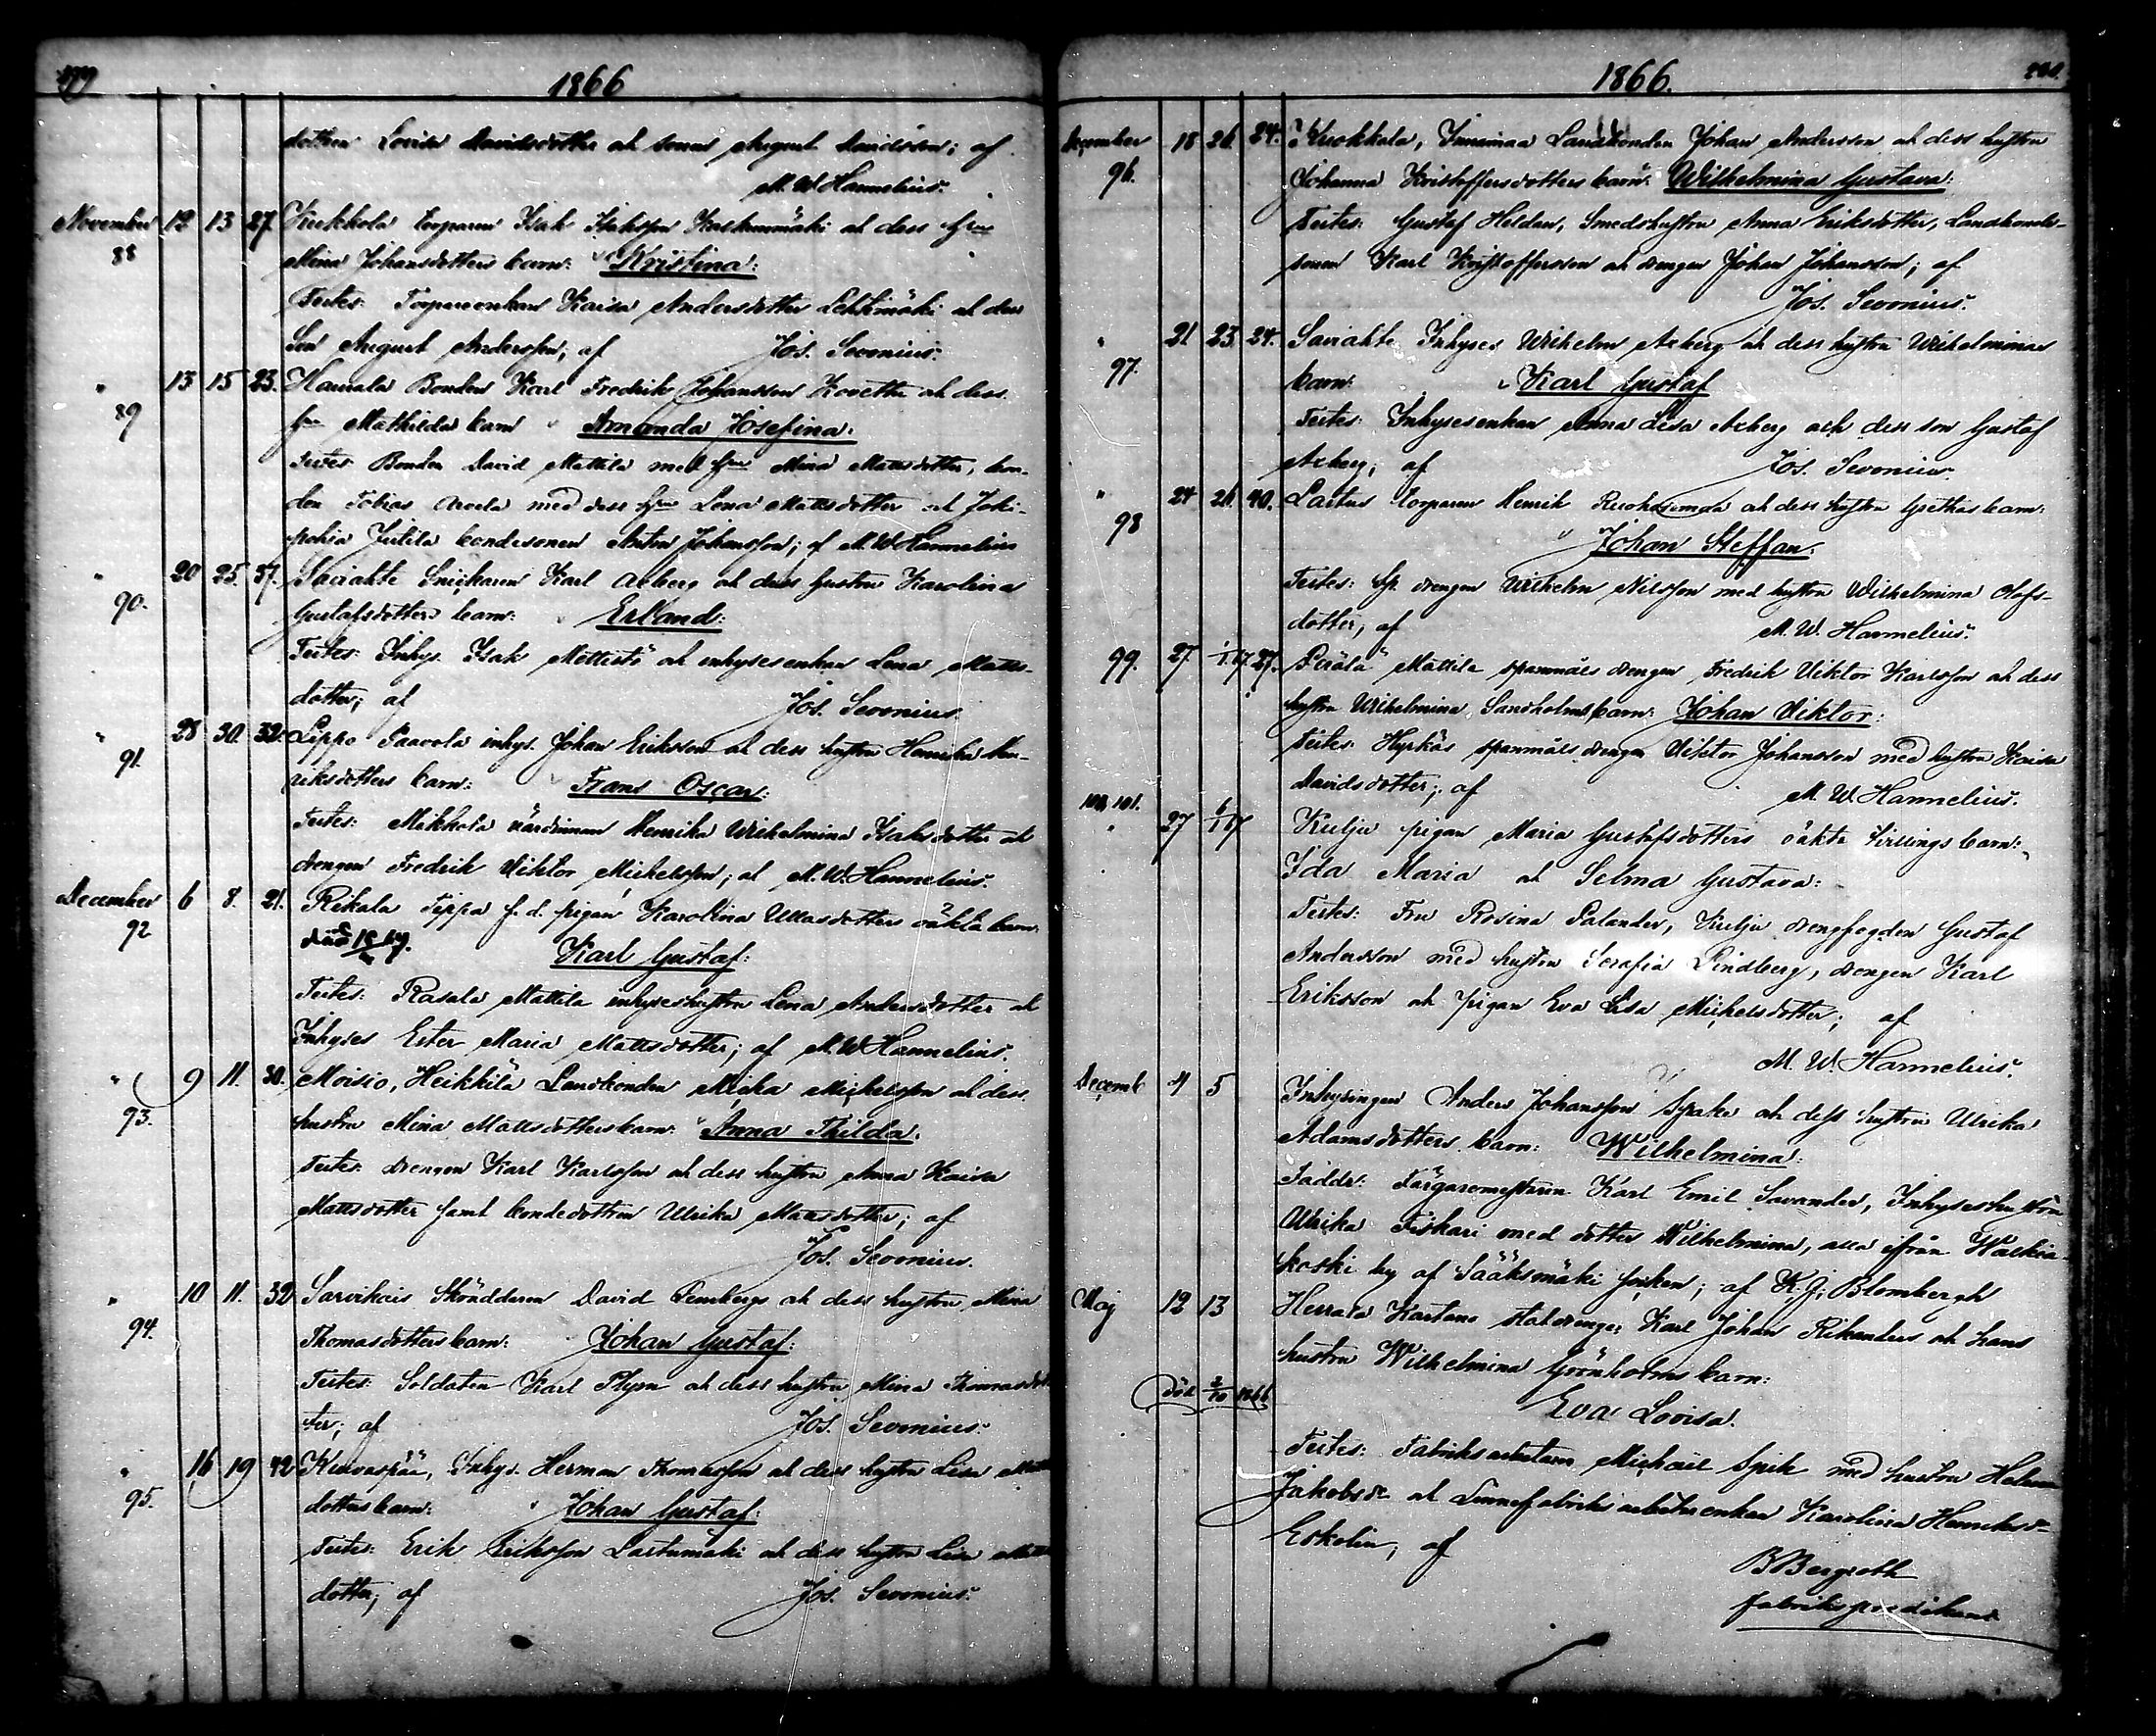 1866
dottren Lovisa Davidsdotter och sonen August Davidsson; af
M. W. Hannelius.
November 12 13 27. Kukkola torparen Isak Isaksson Kaskenmäki och dess hru
88
Mina Johansdotters barn: Kristina:
Testes: Torpareenkan Kaisa Andersdotter Lehtimäki och dess
Son August Andersson, af Jos. Sevonius.
" 13 15 23. Hauvala Bonden Karl Fredrik Johansson Kovetta och dess
89
hru Mathildas barn Amanda Josefina:
Testes Bonden David Mattila med hru Mina Mattsdotter, bon-
den Tobias Arvela med dess hru Lena Mattsdotter och Joki-
pohia Jutila bondesonen Anton Johansson; af M. W. Hannelius
" 20 25. 37. Saviahte Snickaren Karl Axberg och dess hustru Karolina
90.
Gustafsdotters barn: Erland:
Testes: Inhys. Isak Mettistö och inhysesenkan Lena Matts-
dotter; af Jos. Sevonius.
" 28 30. 32. Lippo Paavola inhys. Johan Eriksson och dess hustru Henrika Hen-
91.
riksdotters barn: Frans Oscar:
Testes: Mikkola värdinnan Henrika Wilhelmina Isaksdotter och
drengen Fredrik Viktor Michelsson; af M. W. Hannelius.
December 6 8. 21. Rikala Seppä f. d. pigan Karolina Ullasdotters oäkta barn
92
Karl Gustaf:
Testes: Rasala Mattila inhyseshustru Lena Andersdotter och
Inhyses Ester Maria Mattsdotter; af M. W. Hannelius.
" 9 11. 30. Moisio, Heikkilä Landbonden Micka Michelsson och dess
93.
hustru Mina Mattsdotters barn: Anna Thilda:
Testes: drengen Karl Karlsson och dess hustru Anna Kaisa
Mattsdotter samt bondedottren Ulrika Mattsdotter; af
Jos. Sevonius.
" 10 11. 32 Sarvikais Skräddaren David Lembergs och dess hustru Mina
94.
Thomasdotters barn: Johan Gustaf:
Testes: Soldaten Karl Plym och dess hustru Mina Thomasdot-
ter; af Jos. Sevonius.
" 16 19 42 Kuivaspää, Inhys. Herman Thomasson och dess hustru Lisa
95.
dotters barn: Johan Gustaf:
Testes: Erik Eriksson Lastumäki och dess hustru Lisa
dotter, af Jos. Sevonius.
1866.
December 18 26. 24. Kuokkala, Junnimaa Landbonden Johan Andersson och dess hustru
96.
Johanna Kristoffersdotters barn: Wilhelmina Gustava:
Testes: Gustaf Heldan, Smedshustru Anna Eriksdotter, Landbonde-
sonen Karl Kristoffersson och drengen Johan Johansson; af
Jos. Sevonius.
" 21 23 24. Saviahte Inhyses Wilhelm Axberg och dess hustru Wilhelminas
97.
barn: Karl Gustaf
Testes: Inhysesenkan Anna Lisa Axberg och dess son Gustaf
Axberg, af Jos. Sevonius.
" 24 26. 40. Lastus torparen Henrik och dess hustru Grethas barn:
98
Johan Steffan:
Testes: Sp. drengen Wilhelm Nilsson med hustru Wilhelmina Olofs-
dotter, af M. W. Hannelius.
99. 27. 1/1 67 27. Perälä Mattila spanmåls drengen Fredrik Viktor Karlsson och dess
hustru Wilhelmina Sandholms barn: Johan Viktor:
Testes: Hyrkäs spanmåls drengen Viktor Johansson med hustru Kaisa
Davidsdotter; af M. W. Hannelius.
100, 101.
" 27 6/1 67 Kulju pigan Maria Gustafsdotters oäkta tvillings barn:
Ida Maria och Selma Gustava:
Testes: Fru Rosina Palander, Kulju drengfogden Gustaf
Andersson med hustru Serafia Lindberg, drengen Karl
Eriksson och pigan Eva Lisa Michelsdotter; af
M. W. Hannelius.
Decemb 4 5 Inhysingen Anders Johansson Spake och dess hustru Ulrika
Adamsdotters barn: Wilhelmina:
Faddr: Färgaremestaren Karl Emil Savander, Inhyseshustrun
Ulrika Fiskari med dotter Wilhelmina, alla ifrån Walkia-
koski by af Sääksmäki socken; af K. J. Blombergh
Maj 12 13 Herrala Kartano stalldrenge; Karl Johan Rikanders och hans
hustru Wilhelmina Grönholms barn:
död 2/10 1866
Eva Lovisa.
Testes: Fabriksarbetaren Michael Spik med hustru Helena
Jakobsdr och Linnefabriks arbetareenkan Karolina Henriksdr
Eskolin, af
B Bergroth
fabrikspredikant